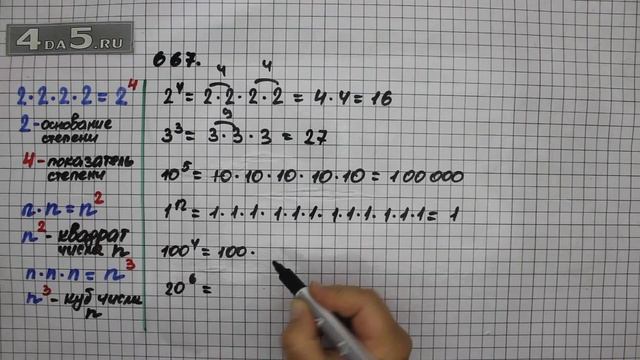 4DA5.RU
667.
2·2·2·2=2⁴
2-основание
степени
4-показатель
степени
n·n=n²
n²-квадрат
числа n
n·n·n=n³
n³-куб числа
n
4 4
2⁴= 2·2·2·2 = 4·4=16
9
3³= 3·3·3 = 27
10⁵= 10·10·10·10·10=100000
1ⁿ= 1·1·1·1·1·1·1·1·1·1·1·1= 1
100⁴= 100·
20⁶=